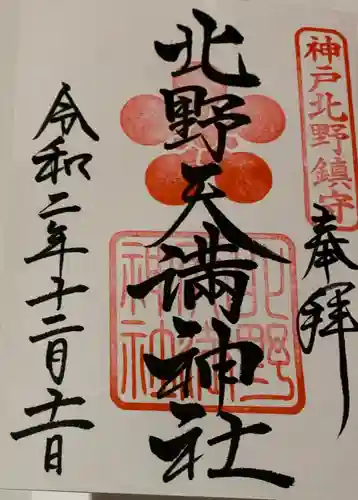 神戸北野鎮守
奉拝
北野天満神社
令和二年十二月十一日